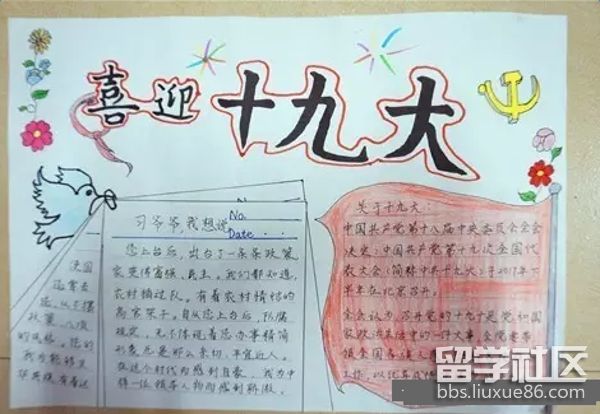 喜迎十九大
习爷爷,我想说
No.
Date
您上台后,出台了一条条政策
家变得富强,民主。我们都知道,
农村插过队。有着农村情结的
高官架子。自从您上台后,队属
规定,无不体现着您办事精简
形象也是那么亲切,平宜近人。
在这个时代而感到自豪,我为中
样一位领导人物而感到骄傲。
关于十九大:
中国共产党第十八届中央委员会全会
决定:中国共产党第十九次全国代
表大会(简称中共十九大)于2017年下
半年在北京召开。
全会认为,召开党的十九大是党和国
家政治生活中的一件大事,全党要带
领全国各族人
留学社区
bbs.liuxue86.com